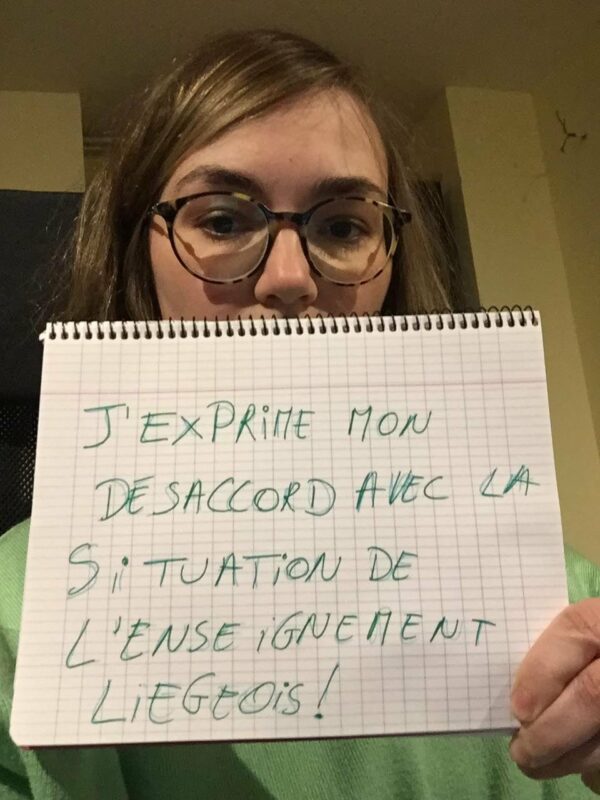 J'EXPRIME MON
DESACCORD AVEC LA
SiiTUATiON DE
L'ENSEiGNEMENT
LiEGEOis!